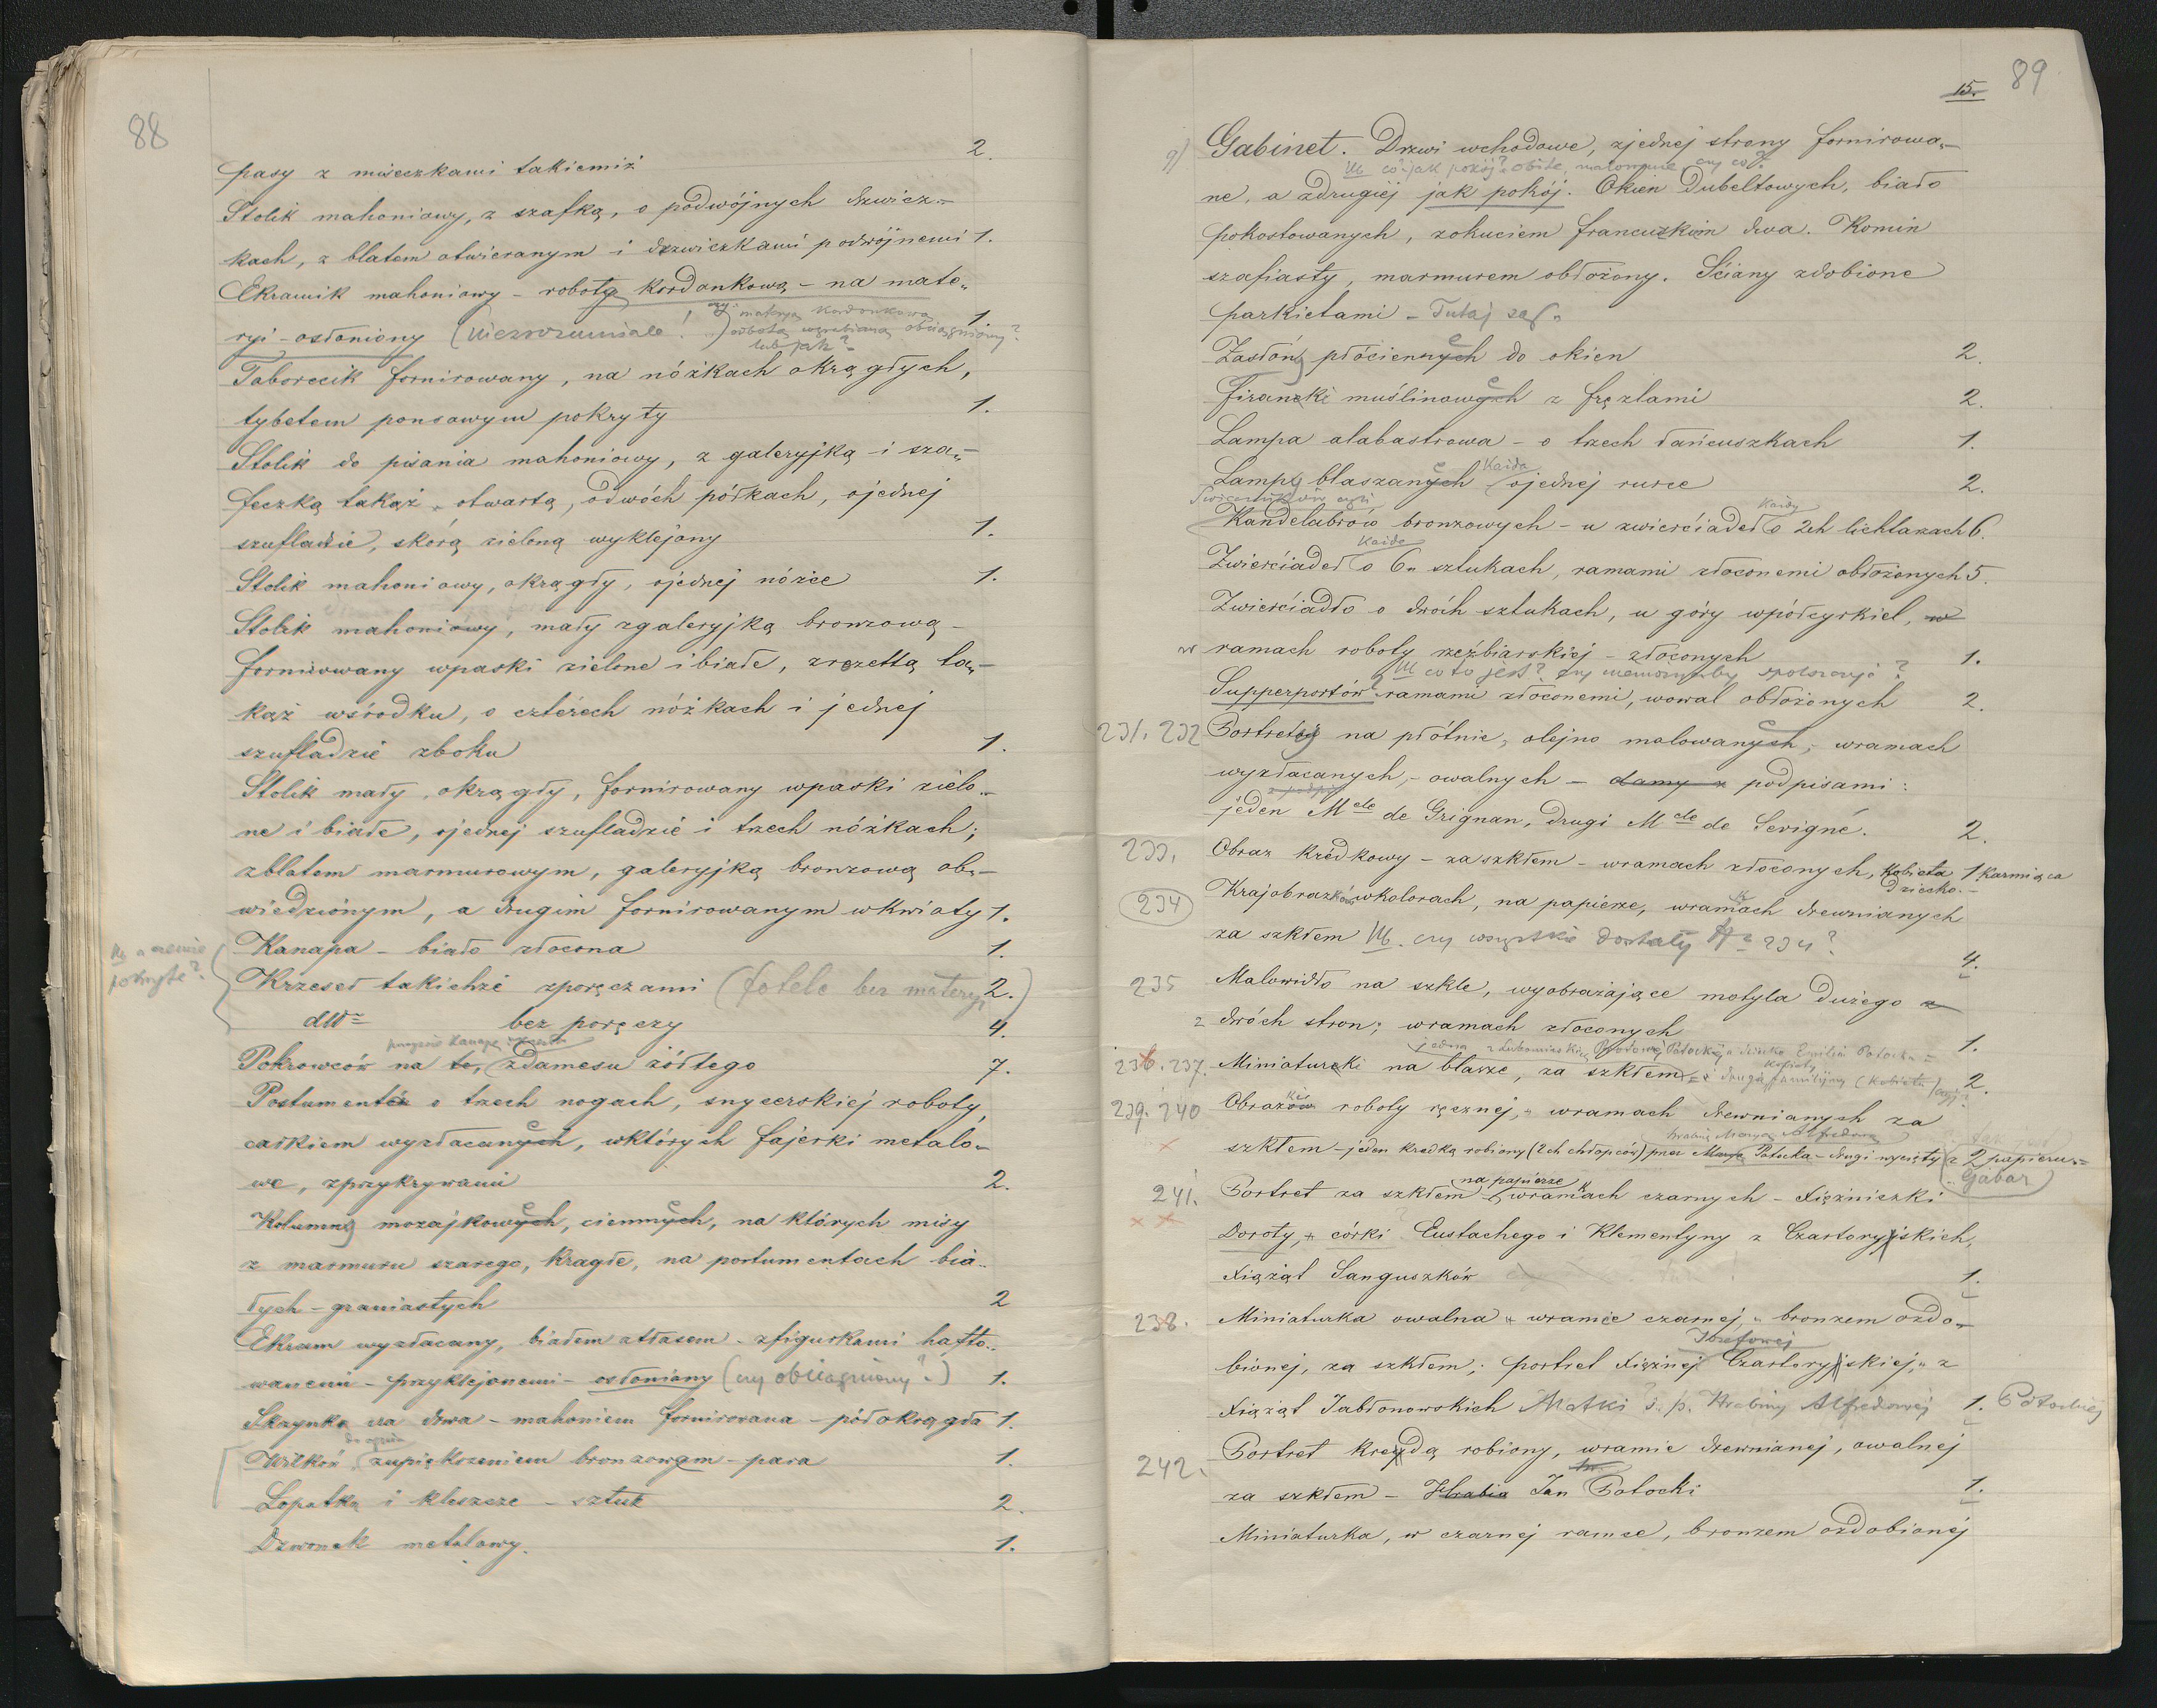 88
pasy z miseczkami takiemiż 2.
Stolik mahoniowy, z szafką, o podwójnych drzwicz-
kach, z blatem otwieranym i drzwiczkami podwójnemi 1.
Ekranik mahoniowy - robotą kordonkową - na mate-
ryi - osłoniony (niezrozumiałe! czy materyą kordonkową robotą wyrabianą obciągniony? lub jak? 1.
Taborecik fornirowany, na nóżkach okrągłych,
tybetem ponsowym pokryty 1.
Stolik do pisania mahoniowy, z galeryjką i sza-
feczką takąż otwartą, o dwóch półkach, o jednej
szufladzie, skórą zieloną wyklejony 1.
Stolik mahoniowy, okrągły, o jednej nóżce 1.
Stolik mahoniowy, mały z galeryjką bronzową -
fornirowany w paski zielone i białe, z rozettą ta-
kąż w środku, o czterech nóżkach i jednej
szufladzie z boku 1.
Stolik mały, okrągły, fornirowany w paski zielo-
ne i białe, o jednej szufladzie i trzech nóżkach;
z blatem marmurowym, galeryjką bronzową ob-
wiedzionym, a drugim fornirowanym w kwiaty 1.
Kanapa - biało złocona 1.
pokryte?
Krzeseł takichże z poręczami (fotele bez materyi) 2.
dtto bez poręczy 4.
Pokrowców na to, z damesu żółtego 7.
Postumenta o trzech nogach, snycerskiej roboty,
całkiem wyzłacanych, w których fajerki metalo-
we, z przykrywami 2.
Kolumny mozajkowych, ciemnych, na których misy
z marmuru szarego, krągłe, na postumentach bia-
łych - graniastych 2
Ekran wyzłacany, białem atłasem - z figurkami hafto-
wanemi - przyklejonemi - osłoniony (czy obciągniony?) 1.
Skrzynka na drwa - mahoniem fornirowana - pół okrągła 1.
do ognia
Wilków, z upiększeniem bronzowym - para 1.
Łopatka i kleszcze - sztuk 2.
Dzwonek metalowy. 1.
15. 89
g) Gabinet. Drzwi wchodowe, z jednej strony fornirowa-
NB co "jak pokój"? obite, malowane czy co?
ne, a z drugiej jak pokój. Okien dubeltowych, biało
pokostowanych, z okuciem francuzkim dwa. Komin
szafiasty, marmurem obłożony. Ściany zdobione
parkietami - Tutaj są:
Zasłony płóciennych do okien 2.
Firanki muślinowych z fręzlami 2.
Lampa alabastrowa - o trzech łańcuszkach 1.
każda
Lampy blaszanych o jednej rurce 2.
Świeczników czyli każdy
Kandelabrów bronzowych - u zwierciadeł o 2ch lichtarzach 6.
każde
Zwierciadeł o 6u sztukach, ramami złoconemi obłożonych 5.
Zwierciadło o dwóch sztukach, u góry w półcyrkiel, w
w ramach roboty rzeźbiarskiej - złoconych 1.
NB co to jest? czy niemożnaby spolszczyć?
Supperportów ramami złoconemi, w owal obłożonych 2.
231. 232 Portrety na płótnie, olejno malowanych, w ramach
wyzłacanych, - owalnych - damy z podpisami:
jeden Mde de Grignan, drugi Mde de Sevigné. 2.
233. Obraz krédkowy - za szkłem - w ramach złoconych, Kobieta karmiąca dziecko. - 1.
234 Krajobrazków w kolorach, na papierze, w ramkach drewnianych
za szkłem NB. czy wszystkie dostały No 234? 4.
235 Malowidło na szkle, wyobrażające motyla dużego z
z dwóch stron; w ramach złoconych 1.
236. 237. Miniaturki na blasze, za szkłem 2.
239. 240 Obrazków roboty ręcznej, w ramach drewnianych za
hrabinę Maryę Alfredową
szkłem - jeden kredką robiony (2ch chłopców) przez Marya Potocka - drugi wycięty z papieru - 2
Gabar
241. Portret za szkłem na papierze w ramkach czarnych - Xiężniczki
Doroty, córki Eustachego i Klementyny z Czartoryjskich,
Xiążąt Sanguszków 1.
238. Miniaturka owalna w ramce czarnej, bronzem ozdo-
Józefowej
bionej, za szkłem; portret Xiężnej Czartoryjskiej, z
Xiążąt Jabłonowskich Matki ś. p. Hrabiny Alfredowej Potockiej 1.
242. Portret kredą robiony, w ramie drewnianej, owalnej
za szkłem - Hrabia hr. Jan Potocki 1.
Miniaturka, w czarnej ramce, bronzem ozdobionej